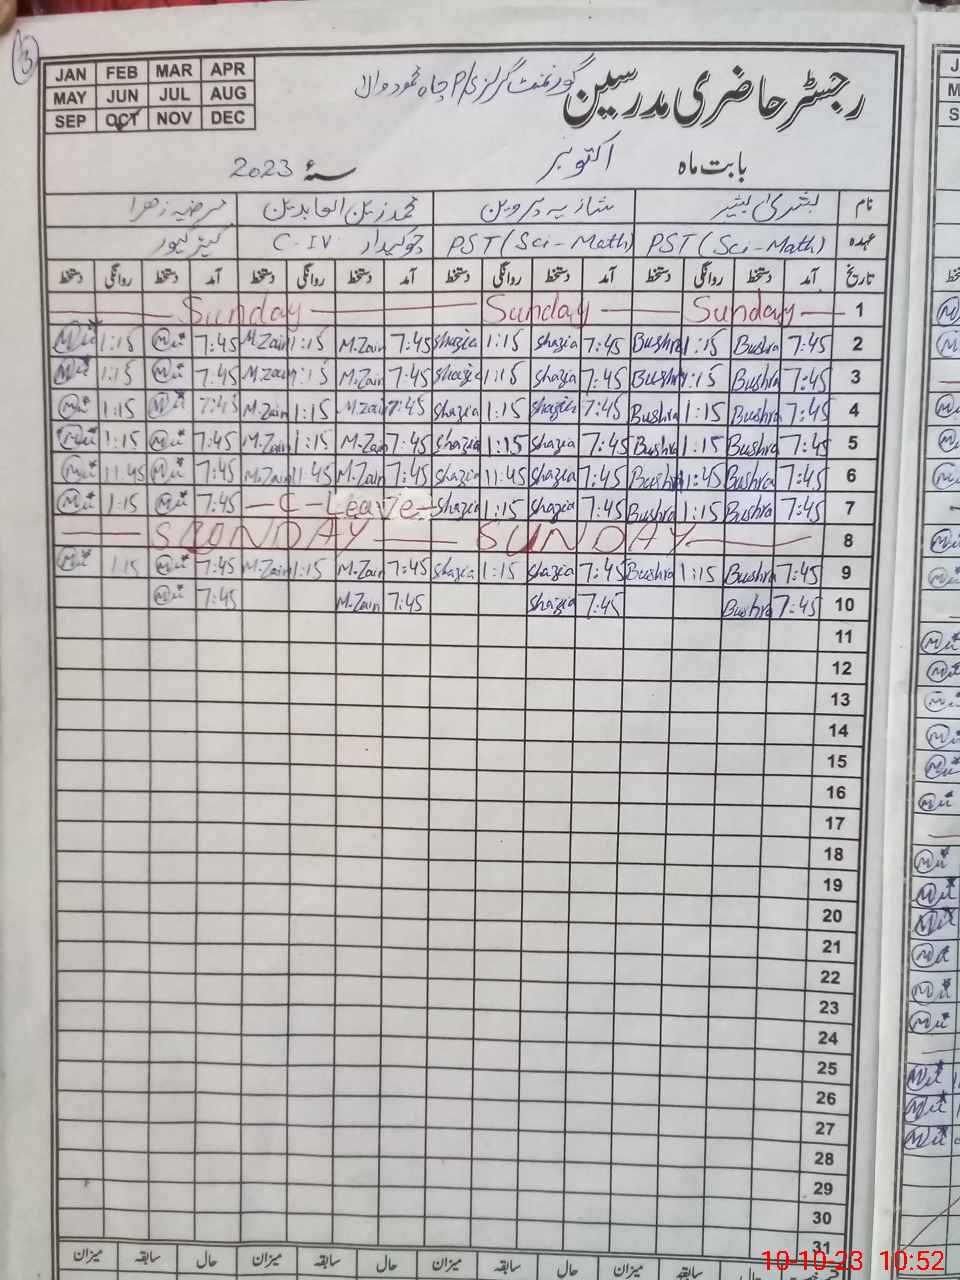 3
JAN FEB MAR APR
MAY JUN JUL AUG
SEP OCT NOV DEC
رجسٹر حاضری مدرسین گورنمنٹ گرلز P/S چاہ محمود والا
بابت ماہ اکتوبر سنہ 2023
نام بشریٰ بشیر شازیہ پروین محمد زین العابدین مرضیہ زھرا
عہدہ PST (Sci-Math) PST (Sci-Math) چوکیدار C-IV کیئر گیور
تاریخ آمد دستخط روانگی دستخط آمد دستخط روانگی دستخط آمد دستخط روانگی دستخط آمد دستخط روانگی دستخط
1 Sunday Sunday Sunday
2 7:45 Bushra 1:15 Bushra 7:45 Shazia 1:15 Shazia 7:45 M.Zain 1:15 M.Zain 7:45 1:15
3 7:45 Bushra 1:15 Bushra 7:45 Shazia 1:15 Shazia 7:45 M.Zain 1:15 M.Zain 7:45 1:15
4 7:45 Bushra 1:15 Bushra 7:45 Shazia 1:15 Shazia 7:45 M.Zain 1:15 M.Zain 7:45 1:15
5 7:45 Bushra 1:15 Bushra 7:45 Shazia 1:15 Shazia 7:45 M.Zain 1:15 M.Zain 7:45 1:15
6 7:45 Bushra 11:45 Bushra 7:45 Shazia 11:45 Shazia 7:45 M.Zain 11:45 M.Zain 7:45 11:45
7 7:45 Bushra 1:15 Bushra 7:45 Shazia 1:15 Shazia C-Leave 7:45 1:15
8 SUNDAY SUNDAY
9 7:45 Bushra 1:15 Bushra 7:45 Shazia 1:15 Shazia 7:45 M.Zain 1:15 M.Zain 7:45 1:15
10 7:45 Bushra 7:45 Shazia 7:45 M.Zain 7:45
11
12
13
14
15
16
17
18
19
20
21
22
23
24
25
26
27
28
29
30
31
حال سابقہ میزان حال سابقہ میزان حال سابقہ میزان
10-10-23 10:52